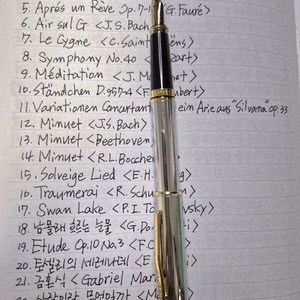 5. Aprés un Rêve Op.7-1 (G. Fauré)
6. Air sul G <J.S.Bach
7. Le Cygne <C.Saint ëns
8. Symphony No.40 < zart>
9. Méditation <J.M net>
10. Ständchen D.957-4 <F. ubert>
11. Variationen Concertant ein Arie aus "Silvana" op.33
12. Minuet <J.S.Bach>
13. Minuet <Beethoven
14. Minuet <R.L.Bocche
15. Solveige Lied <E.H. g>
16. Traumerai <R.Schu n>
17. Swan Lake <P.I.T vsky>
18. 남몰래 흐르는 눈물 <G.Do i>
19. Etude Op.10 No.3 <F.C
20. 토셀리의 세레나데 <E.
21. 금혼식 <Gabriel Mar
22. 사랑이란 무엇일까 <M